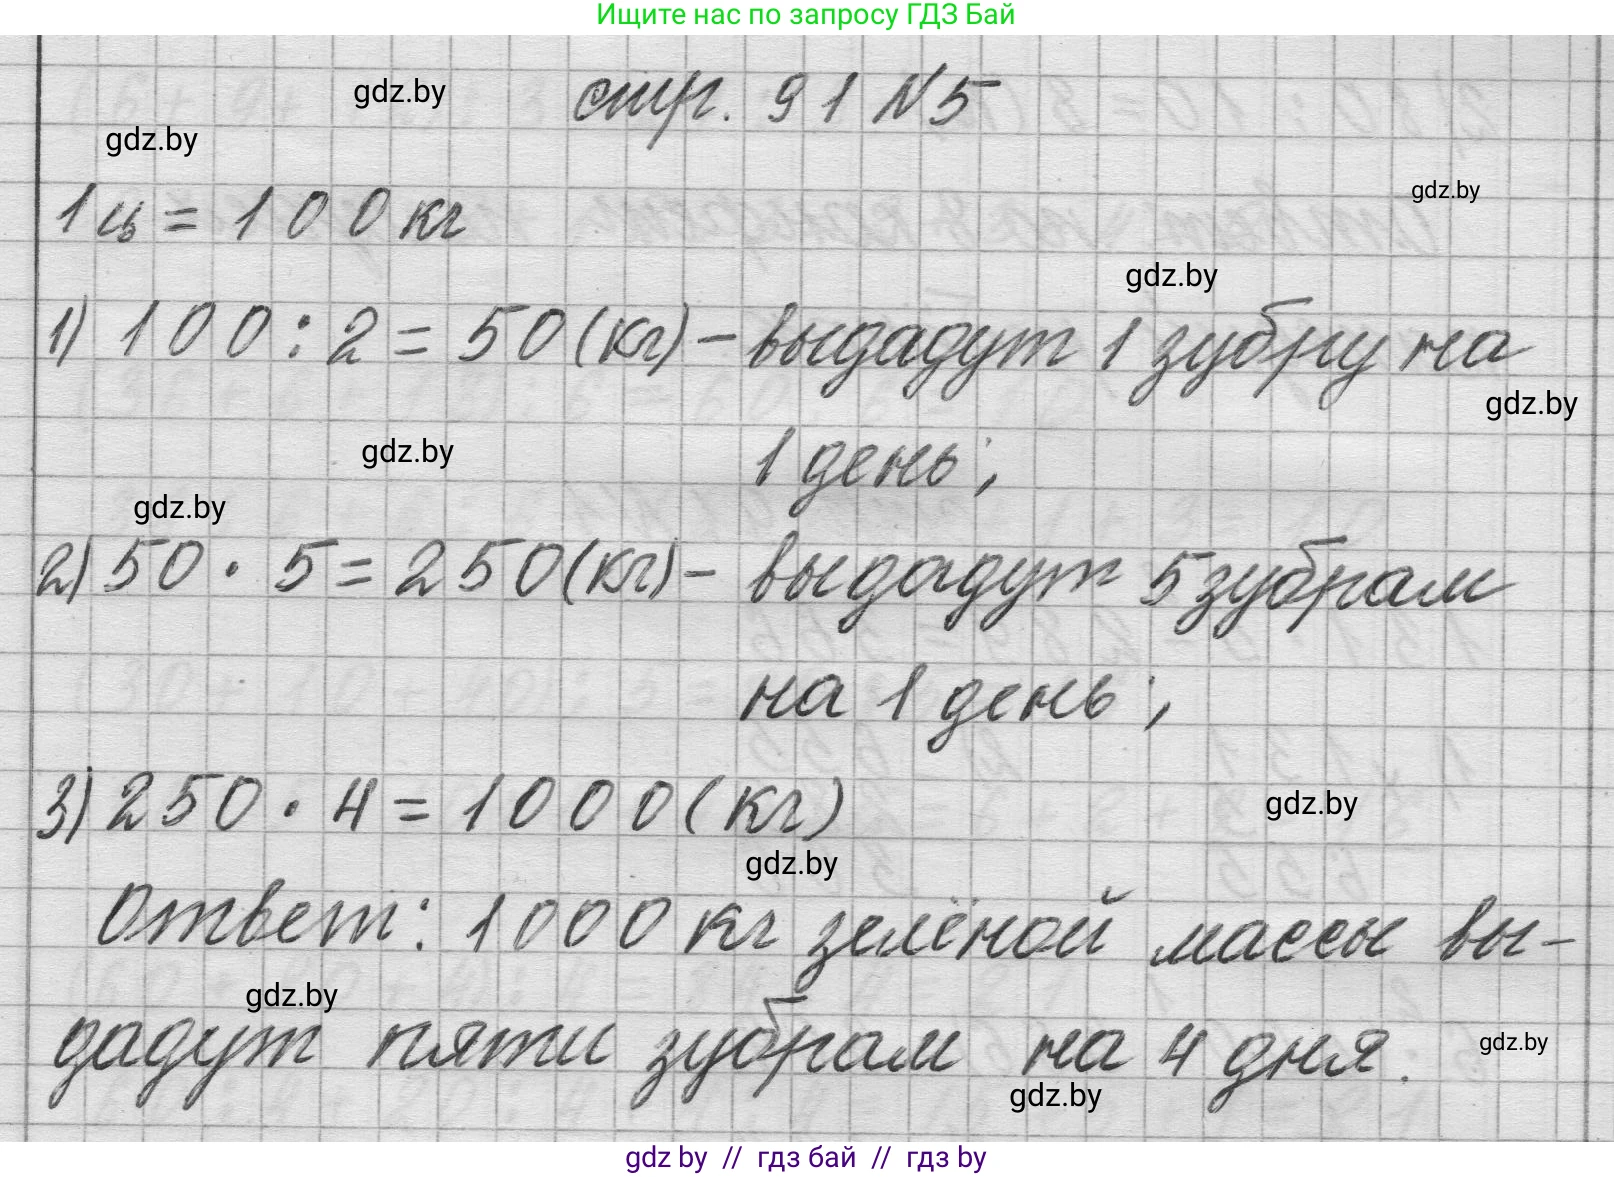 Ищите нас по запросу ГДЗ Бай
стр. 91 N5
gdz.by
gdz.by
1ц = 100 кг
gdz.by
gdz.by
1) 100 : 2 = 50 (кг) - выдадут 1 зубру на
gdz.by
1 день;
gdz.by
gdz.by
2) 50 · 5 = 250 (кг) - выдадут 5 зубрам
на 1 день;
3) 250 · 4 = 1000 (кг)
gdz.by
gdz.by
Ответ: 1000 кг зелёной массы вы-
gdz.by
дадут пяти зубрам на 4 дня.
gdz.by
gdz.by
gdz by // гдз бай // гдз by